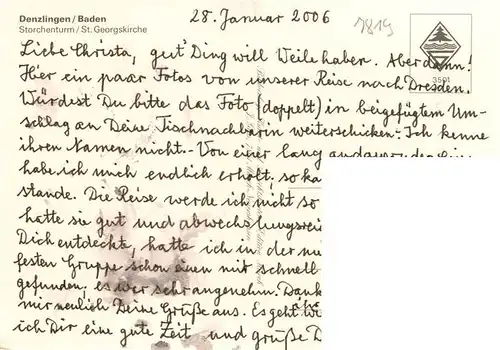 Denzlingen / Baden
Storchenturm / St. Georgskirche
28. Januar 2006
7819
3501
Liebe Christa, gut' Ding will Weile haben. Aber dann!
Hier ein paar Fotos von unserer Reise nach Dresden.
Würdest Du bitte das Foto (doppelt) in beigefügtem Um-
schlag an Deine Tischnachbarin weiterschicken.- Ich kenne
ihren Namen nicht.- Von einer lang
habe ich mich endlich erholt, so
stande. Die Reise werde ich nicht so
hatte sie gut und abwechslungsrei
Dich entdeckte, hatte ich in der
festen Gruppe schon einen mit schnell
gefunden, es war sehr angenehm. Dank
mir neulich Deine Grüße aus. Es geht
ich Dir eine gute Zeit und grüße D